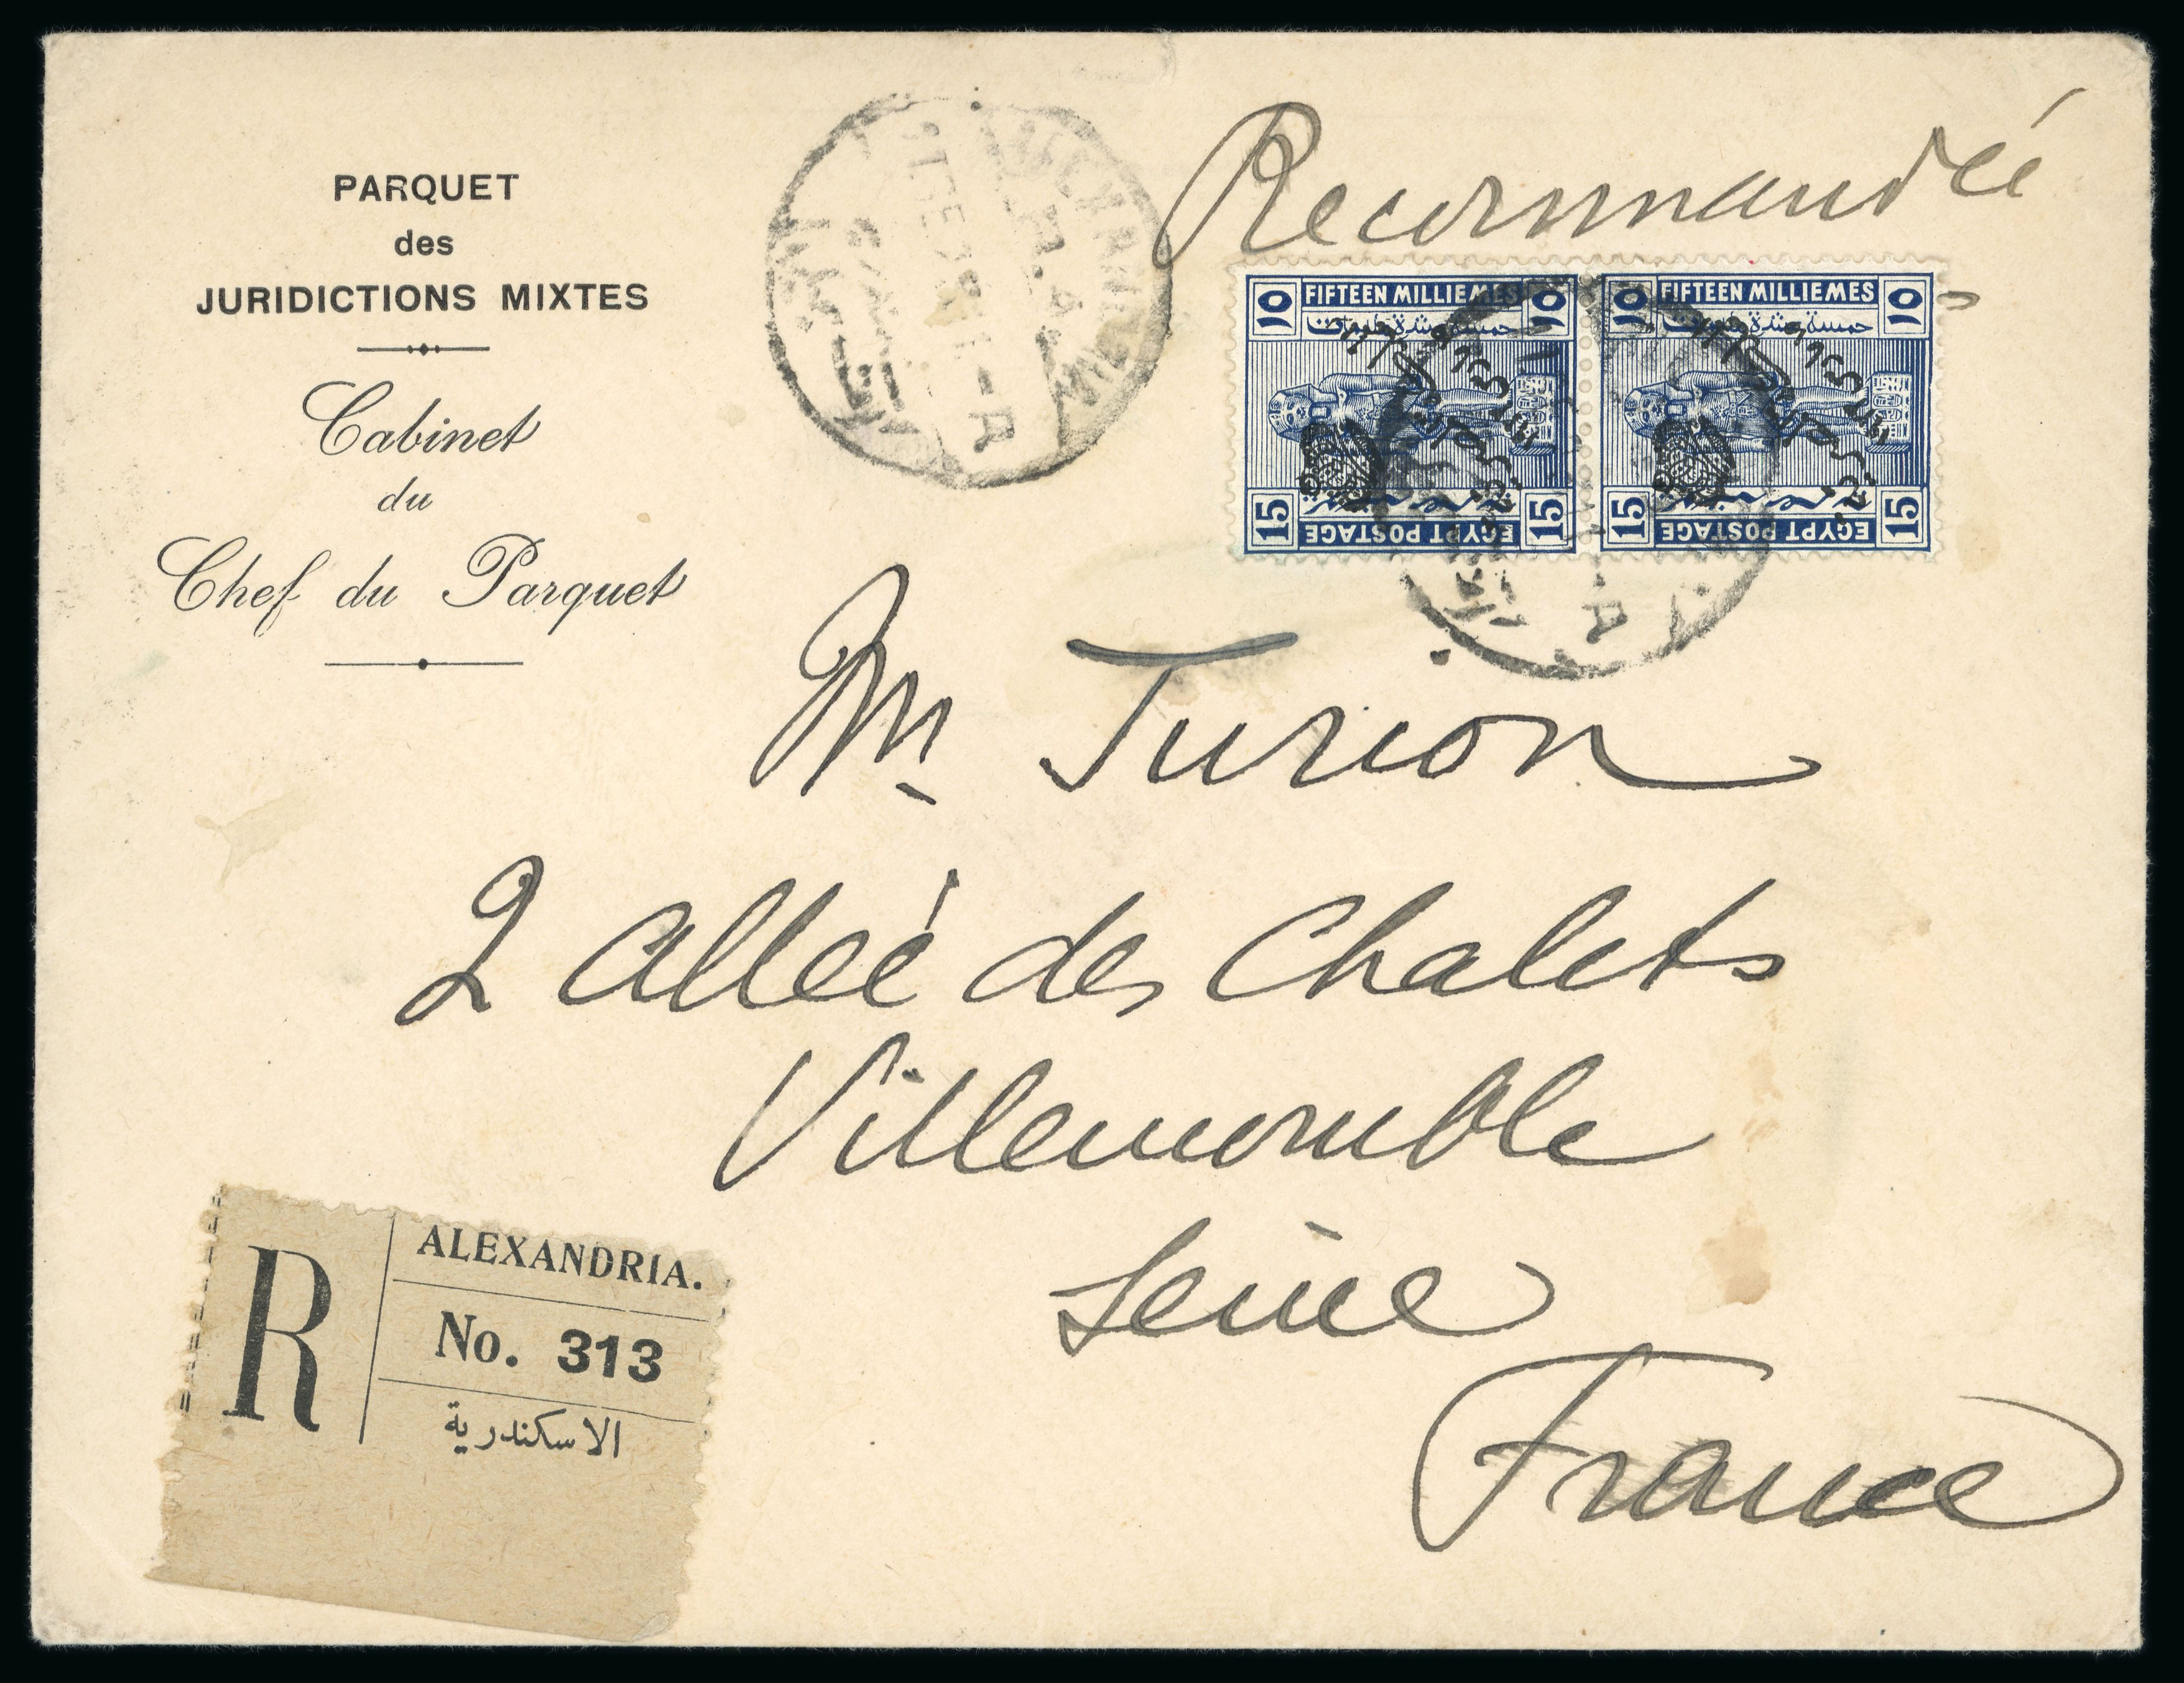 PARQUET
des
JURIDICTIONS MIXTES
Cabinet
du
Chef du Parquet
Recommandée
FIFTEEN MILLIEMES
خمسة عشرة مليمات
15 EGYPT POSTAGE 15
FIFTEEN MILLIEMES
خمسة عشرة مليمات
15 EGYPT POSTAGE 15
Mr Turion
2 allée des Chalets
Villemomble
Seine
France
R
ALEXANDRIA.
No. 313
الاسكندرية